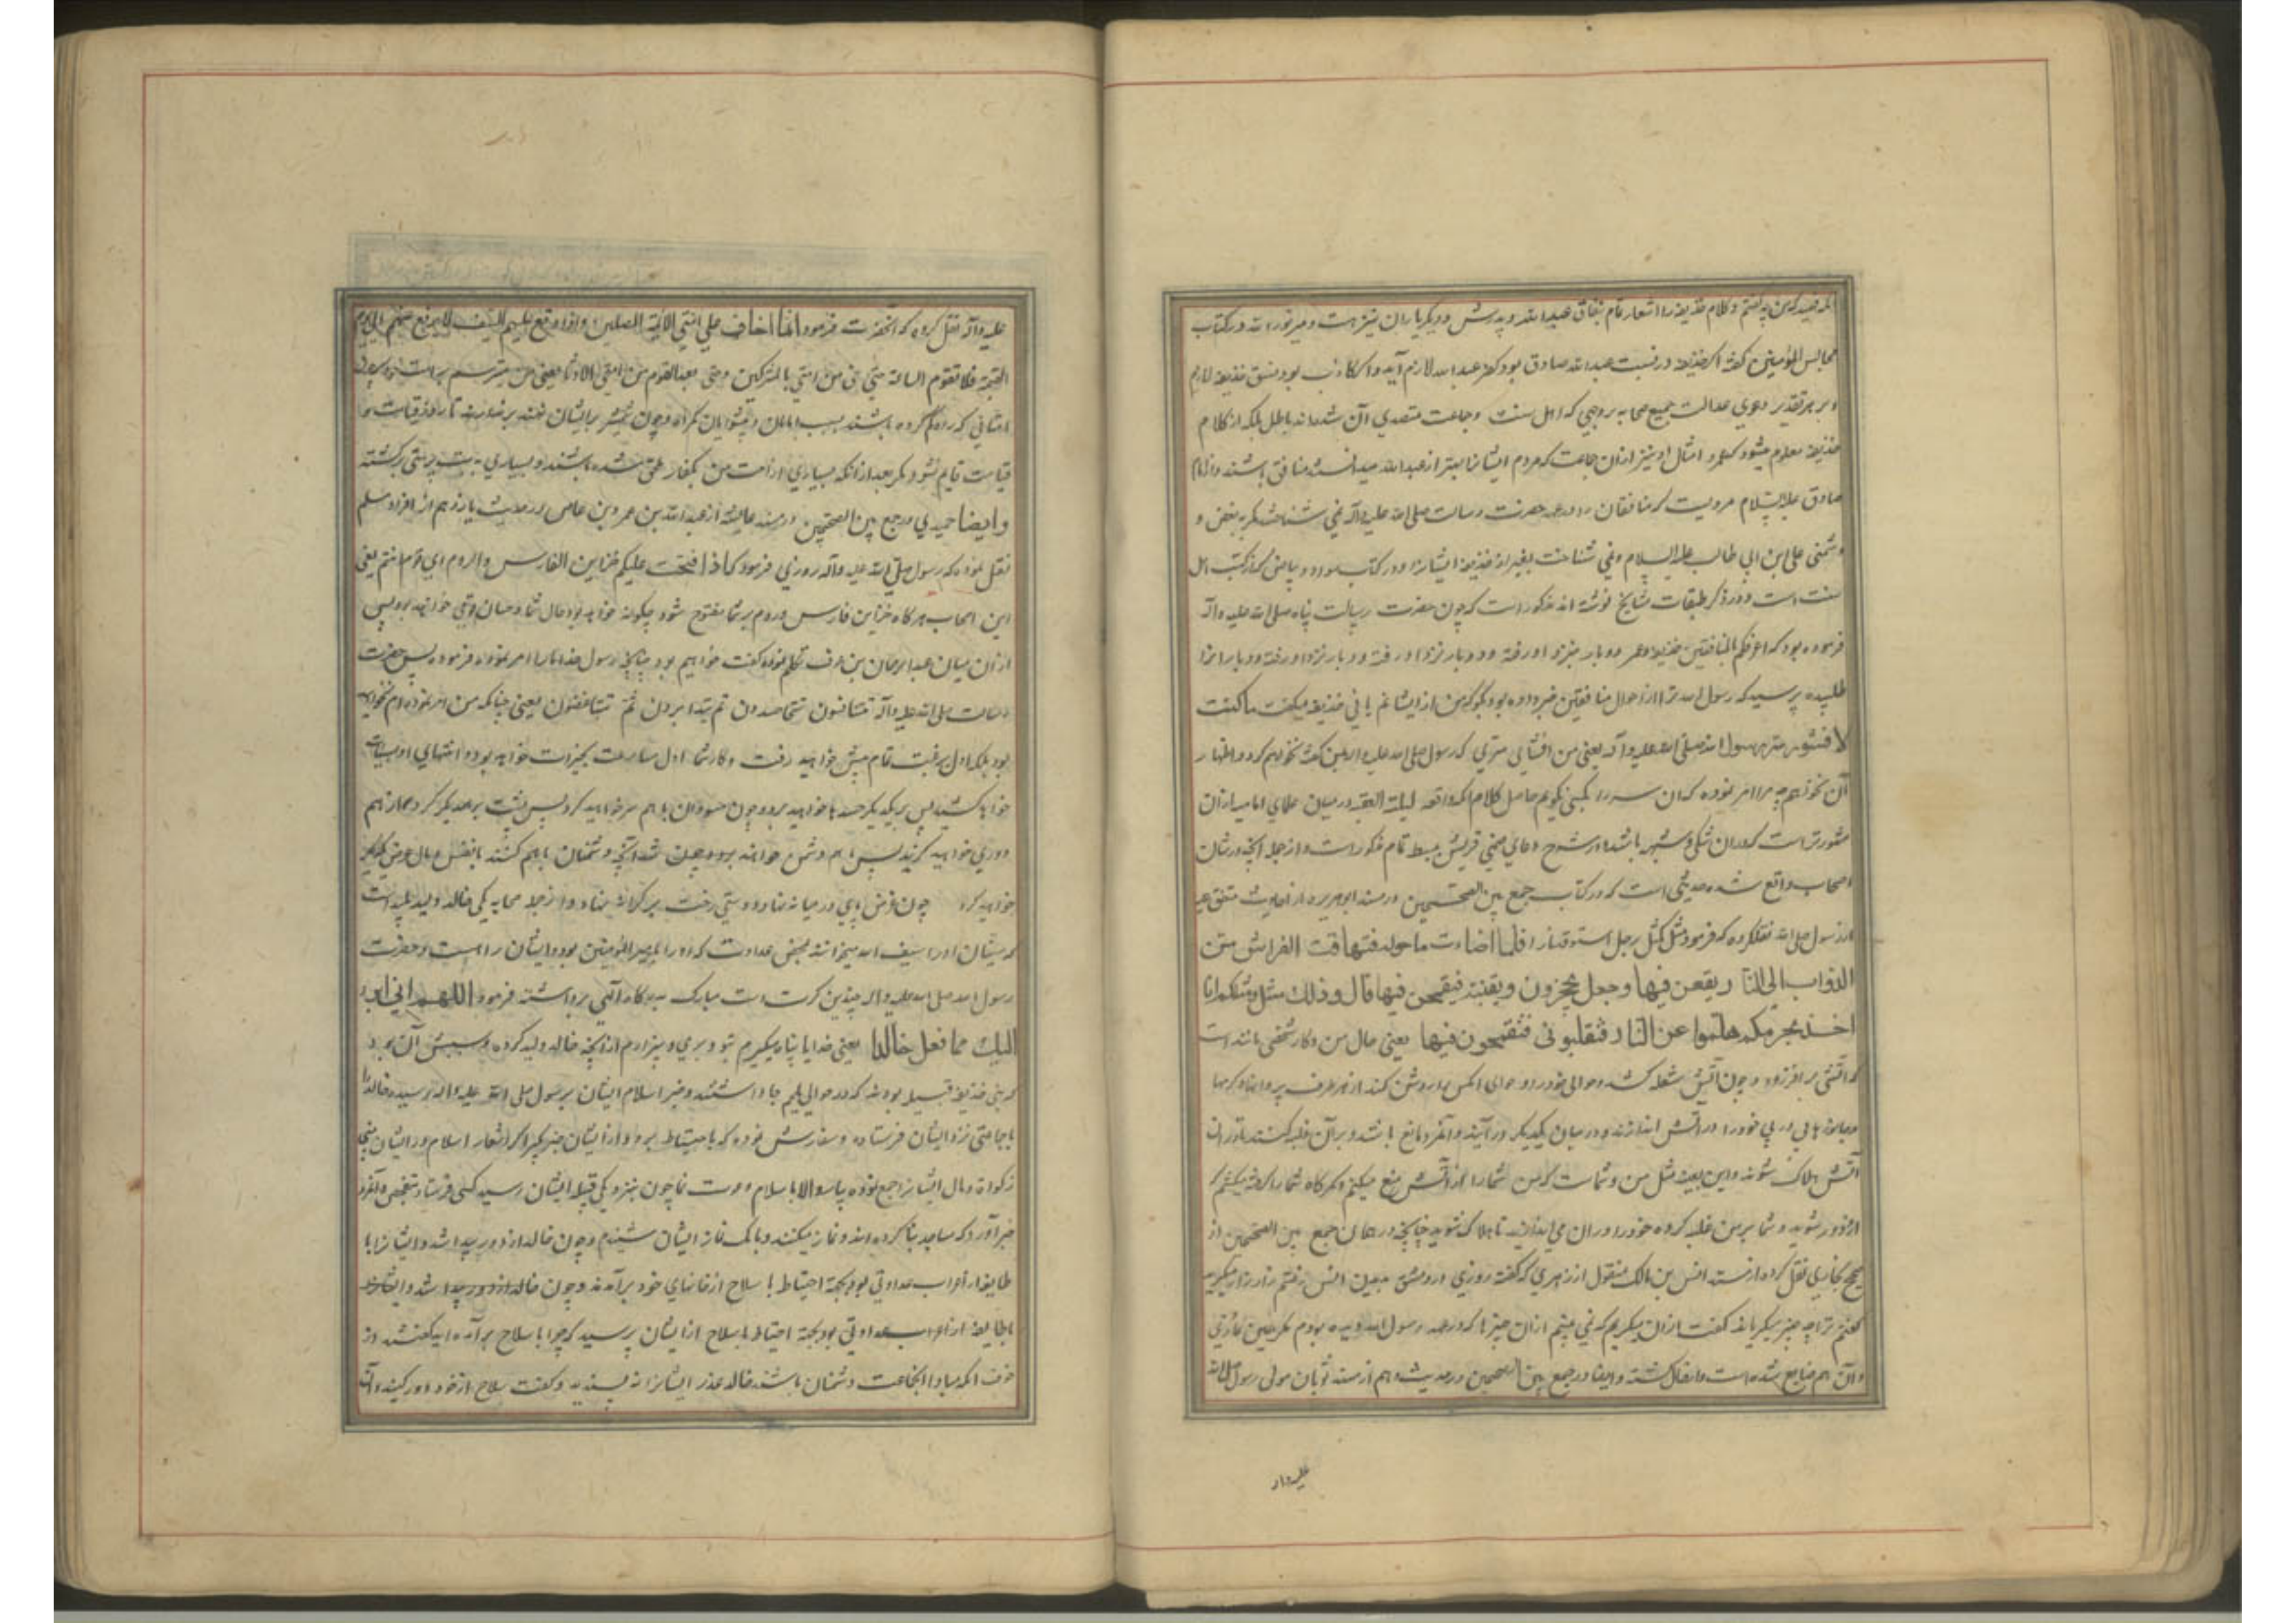 مجالس المؤمنین گفته اگر حذیفه در نسبت عبدالله صادق بود کفر عبدالله لازم آید و اگر کاذب بود فسق حذیفه لازم
و بر هر تقدیر دعوی عدالت جمیع صحابه بروجهی که اهل سنت و جماعت متصدی آن شده‌اند باطل بلکه از کلام
حذیفه معلوم میشود که عمر و امثال او نیز ازان جماعت که مردم ایشانرا بهتر از عبدالله میدانسته منافق باشند و از امام
صادق علیه السلام مرویست که منافقان را در عهد حضرت رسالت صلی الله علیه وآله نمی شناختند مگر به بغض و
دشمنی علی ابن ابی طالب علیه السلام و نمی شناخت بغیر از حذیفه ایشانرا و در کتاب که از کتب اهل
سنت است و در ذکر طبقات مشایخ نوشته اند مذکور است که چون حضرت رسالت پناه صلی الله علیه وآله
فرموده بود که اعرفکم بالمنافقین حذیفه و عمر دو بار بنزد او رفته و دو بار نزد او رفته و دو بار او را
طلبیده پرسید که رسول الله ترا از احوال منافقین خبر داده بود بگو که من از ایشانم یا نی حذیفه میگفت ما کنت
لافشو سر رسول الله صلی الله علیه وآله یعنی من افشای سری که رسول صلی الله علیه وآله بمن گفته نخواهم کرد و اظهار
آن نخواهم چه مرا امر نموده که آن سر را بکسی نگویم حاصل کلام که واقعه لیلة العقبه در میان علمای امامیه ازان
مشهورتر است که دران شکی و شبهه باشد و در شرح دعای صنمی قریش ببسط تمام مذکور است و از جمله آنچه در شان
اصحاب واقع شده حدیثی است که در کتاب جمع بین الصحیحین در مسند ابوهریره از احادیث متفق علیه
از رسول صلی الله نقل کرده که فرمود مثلی کمثل رجل استوقد نارا فلما اضاءت ما حوله فتهافت الفراش من
الدواب الی النار یقعن فیها وجعل یحجزهن ویغلبنه فیقتحمن فیها قال وذلک مثلی ومثلکم انا
اخذ بحجزکم هلموا عن النار فتغلبونی فتقتحمون فیها یعنی حال من و کار شخصی مانند است
که آتشی برافروزد و چون آتش شعله کشد و حوالی خود را روشن کند از هر طرف پروانها و کرمها
آتش هلاک شوند و این بعینه مثل من و شماست که من شما را از آتش منع میکنم و کمرگاه شما را گرفته میکشم که
ازو دور شوید و شما بر من غلبه کرده خود را دران می اندازید تا هلاک شوید چنانچه در همان جمع بین الصحیحین از
صحیح بخاری نقل کرده از مسند انس بن مالک منقول از زهری که گفته روزی در دمشق بدیدن انس رفتم زار زار میگریست
گفتم ترا چه چیز میگریاند گفت ازان میگریم که نمی بینم ازان چیزها که در عهد رسول الله دیده بودم مگر همین نماز
و آن هم ضایع شده است و ایضا در جمع بین الصحیحین در حدیث دهم از مسند ثوبان مولی رسول صلی الله
علیه وآله
علیه وآله نقل کرده که آنحضرت فرمود انما اخاف علی امتی الائمة المضلین واذا وقع علیهم السیف لا یرفع عنهم الی یوم
القیمة فلا تقوم الساعة حتی حی من امتی بالمشرکین وحتی یعبد القوم من امتی الاوثان یعنی من میترسم
امتانی که راه گم کرده باشند بسبب امامان و پیشوایان گمراه و چون شمشیر بر ایشان نهند بر ندارند تا روز قیامت و
قیامت قایم نشود مگر بعد از آنکه بسیاری از امت من بکفار ملحق شده باشند و بسیاری به بت پرستی برگشته
وایضا حمیدی در جمع بین الصحیحین در مسند از عبدالله بن عمرو بن عاص در حدیث یازدهم از افراد مسلم
نقل نموده که رسول صلی الله علیه وآله روزی فرمود که اذا فتحت علیکم خزاین الفارس والروم ای قوم انتم یعنی
این اصحاب هرگاه خزاین فارس و روم بر شما مفتوح شود چگونه خواهد بود حال شما و
ازان میان عبدالرحمان بن عوف تکلم نموده گفت خواهیم بود چنانچه رسول خدا ما را امر نموده فرموده پس حضرت
رسالت صلی الله علیه وآله تتنافسون تتحاسدون ثم تتدابرون ثم تتباغضون یعنی چنانکه من امر نموده ام نخواهید
بود بلکه اول برغبت تمام پیش خواهید رفت و کار شما اول مسارعت بخیرات خواهد بود و انتهای او
خواهد کشید پس بر یکدیگر حسدها خواهید برد و چون حسودان با هم سر خواهید کرد پس پشت بر همدیگر کرده از هم
دوری خواهید گزید پس با هم دشمن خواهید بود و چون دشمنان با هم کنند
خواهید کرد چون غرض پای در میانه نهاد و دوستی رخت بر کران نهاد و از جمله صحابه یکی خالد ولید پلید است
که سنیان او را سیف الله میخوانند بمحض عداوت که او را با امیرالمؤمنین بود و حضرت
رسول الله صلی الله علیه وآله چندین کرت دست مبارک بدرگاه الهی برداشته فرمود اللهم انی ابرء
الیک مما فعل خالد یعنی خدایا پناه میگیرم بتو و بری و بیزارم از آنچه خالد ولید کرده و سببش آن بود
که بنی حذیفه قبیله بودند که در حوالی یلملم جا داشتند و خبر اسلام ایشان برسول صلی الله علیه وآله رسیده خالد را
با جماعتی نزد ایشان فرستاده و سفارش نموده که باحتیاط برود و از ایشان خبر گیرد اگر شعار اسلام در ایشان
زکواة و مال ایشانرا جمع نموده چون بنزدیکی قبیله ایشان رسید کسی فرستاد
خبر آورد که مساجد بنا کرده اند و نماز میکنند و بانگ نماز ایشان شنیدم و چون خالد از دور پیدا شد و ایشانرا با
طایفه از اعراب عداوتی بود بجهة احتیاط با سلاح از خانهای خود برآمدند و چون خالد از دور پیدا شد و ایشانرا
با طایفه از اعراب عداوتی بود بجهة احتیاط با سلاح از ایشان پرسید که چرا با سلاح برآمده اید گفتند از
خوف آنکه مبادا آنجماعت دشمنان باشند خالد عذر ایشانرا نه پسندید و گفت سلاح از خود دور کنید